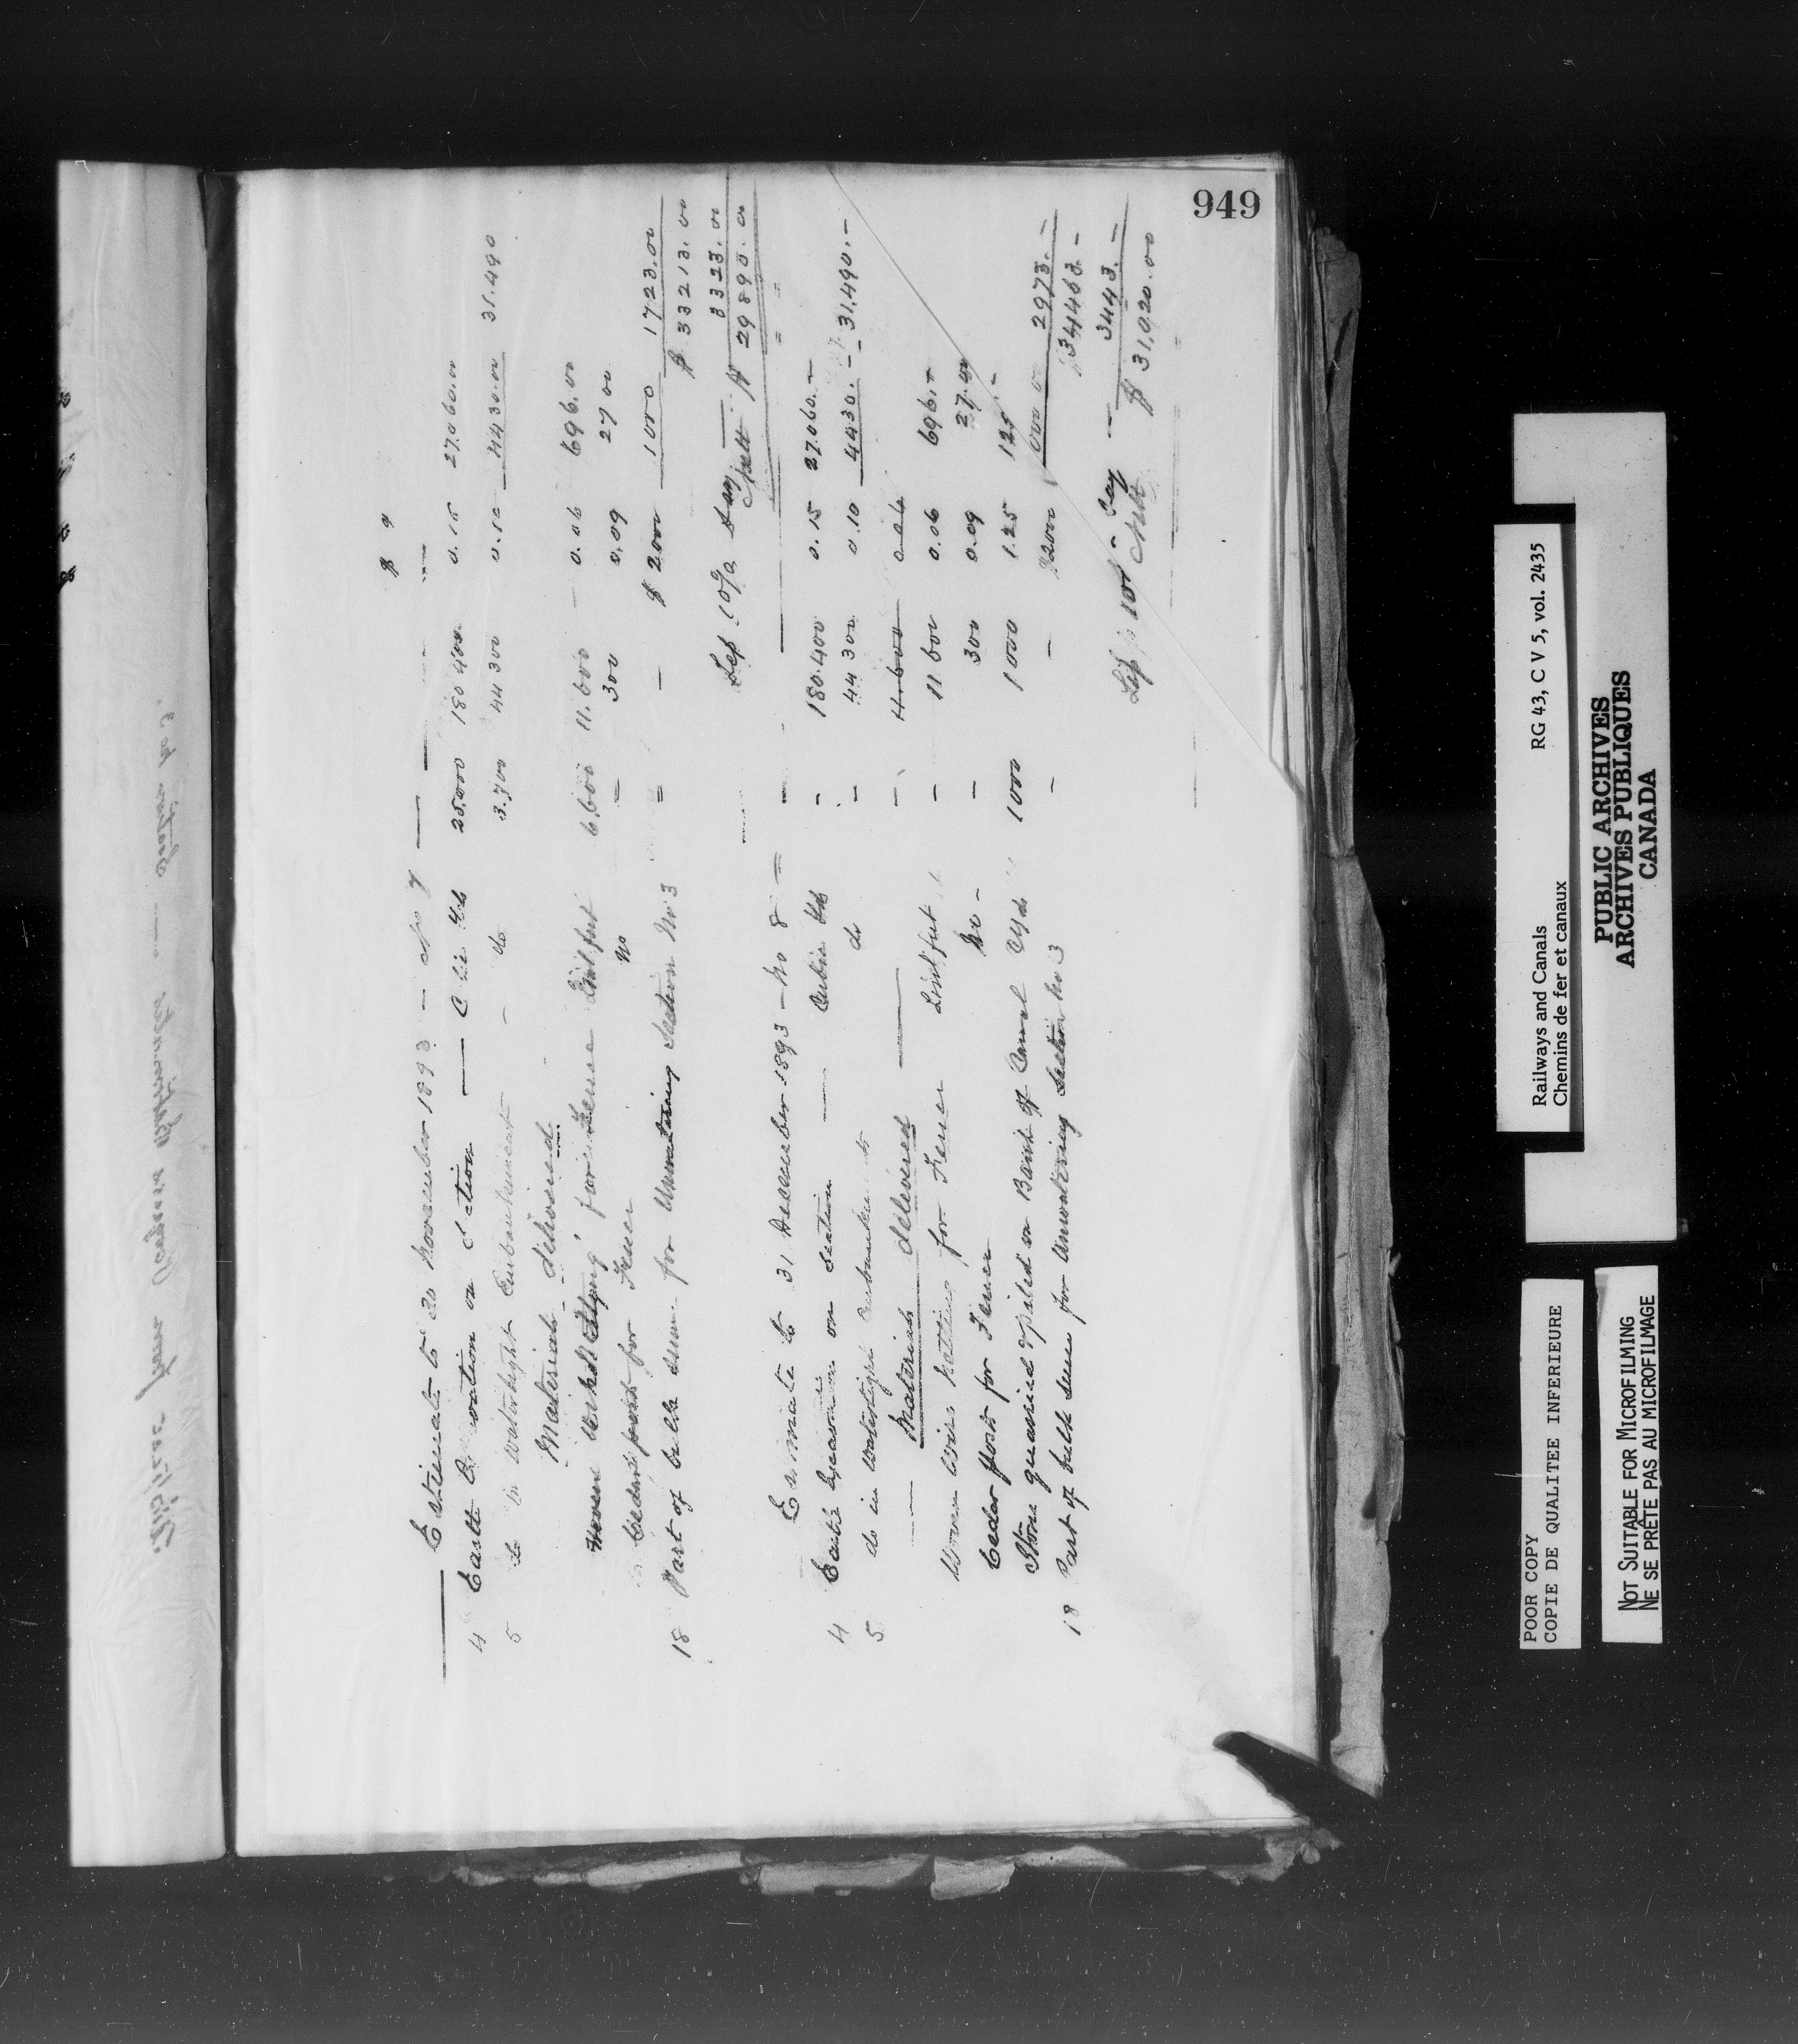 949
$ ¢
Estimate to 30 November 1893 - No 7
4 Earth Excavation on Section — Cubic Yds 25.000 180 400 0.15 27.060.00
5 do in watertight Embankment - do 3.700 44 300 0.10 4430.00 31.490
Materials delivered
Woven for Fence Linl feet 6,600 11.600 - 0.06 696.00
Cedar posts for Fence No = 300 0.09 27 00
18 Part of bulk sum for Unwatering Section No 3 = - $ 2000 1000 1723.00
$ 33213.00
Less 10% say 3323.00
Nett $ 29890.00
Estimate to 31 December 1893 - No 8 =
4 Earth Excavation on Section — Cubic Yds - 180.400 0.15 27.060.-
5 do in watertight Embankments do - 44 300 0.10 4430.- 31.490.-
Materials delivered
Woven Wire Netting for Fence Linl feet - 11 600 0.06 696.-
Cedar posts for Fence No - - 300 0.09 27.00
Stone quarried & piled on Bank of Canal C yds 1000 1000 1.25 125.-
18 Part of bulk sum for Unwatering Section No 3 - - $2000 2973.-
34463.-
Less 10% - Say — 3443.-
Nett $ 31,020.00
Railways and Canals RG 43, C V 5, vol. 2435
Chemins de fer et canaux
PUBLIC ARCHIVES
ARCHIVES PUBLIQUES
CANADA
POOR COPY
COPIE DE QUALITEE INFERIEURE
NOT SUITABLE FOR MICROFILMING
NE SE PRÊTE PAS AU MICROFILMAGE